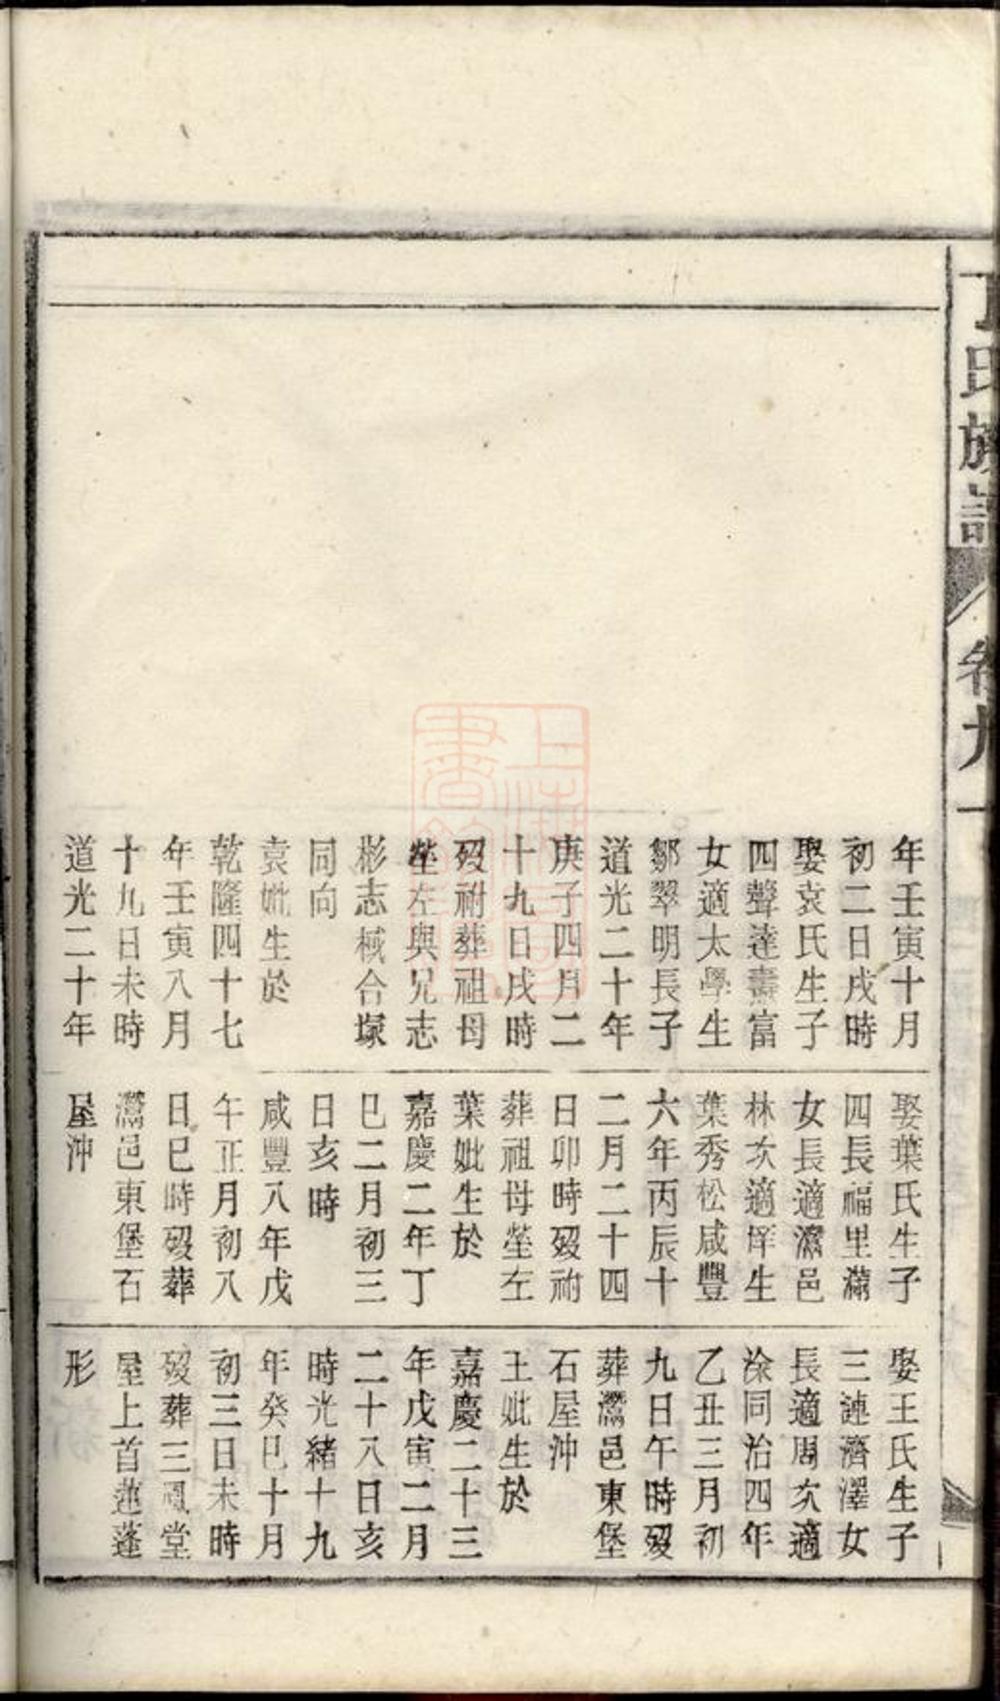 丁氏族譜
卷九
年壬寅十月
初二日戌時
娶袁氏生子
四聲達壽富
女適太學生
鄒翠明長子
道光二十年
庚子四月二
十九日戌時
歿祔葬祖母
塋左與兄志
彬志棫合塚
同向
袁妣生於
乾隆四十七
年壬寅八月
十九日未時
道光二十年
娶葉氏生子
四長福里滿
女長適瀏邑
林次適庠生
葉秀松咸豐
六年丙辰十
二月二十四
日卯時歿祔
葬祖母塋左
葉妣生於
嘉慶二年丁
巳二月初三
日亥時
咸豐八年戊
午正月初八
日巳時歿葬
邑東堡石
屋沖
娶王氏生子
三漣濟澤女
長適周次適
涂同治四年
乙丑三月初
九日午時歿
葬邑東堡
石屋沖
王妣生於
嘉慶二十三
年戊寅二月
二十八日亥
時光緒十九
年癸巳十月
初三日未時
歿葬三鳳堂
屋上首蓮蓬
形
上海圖書館